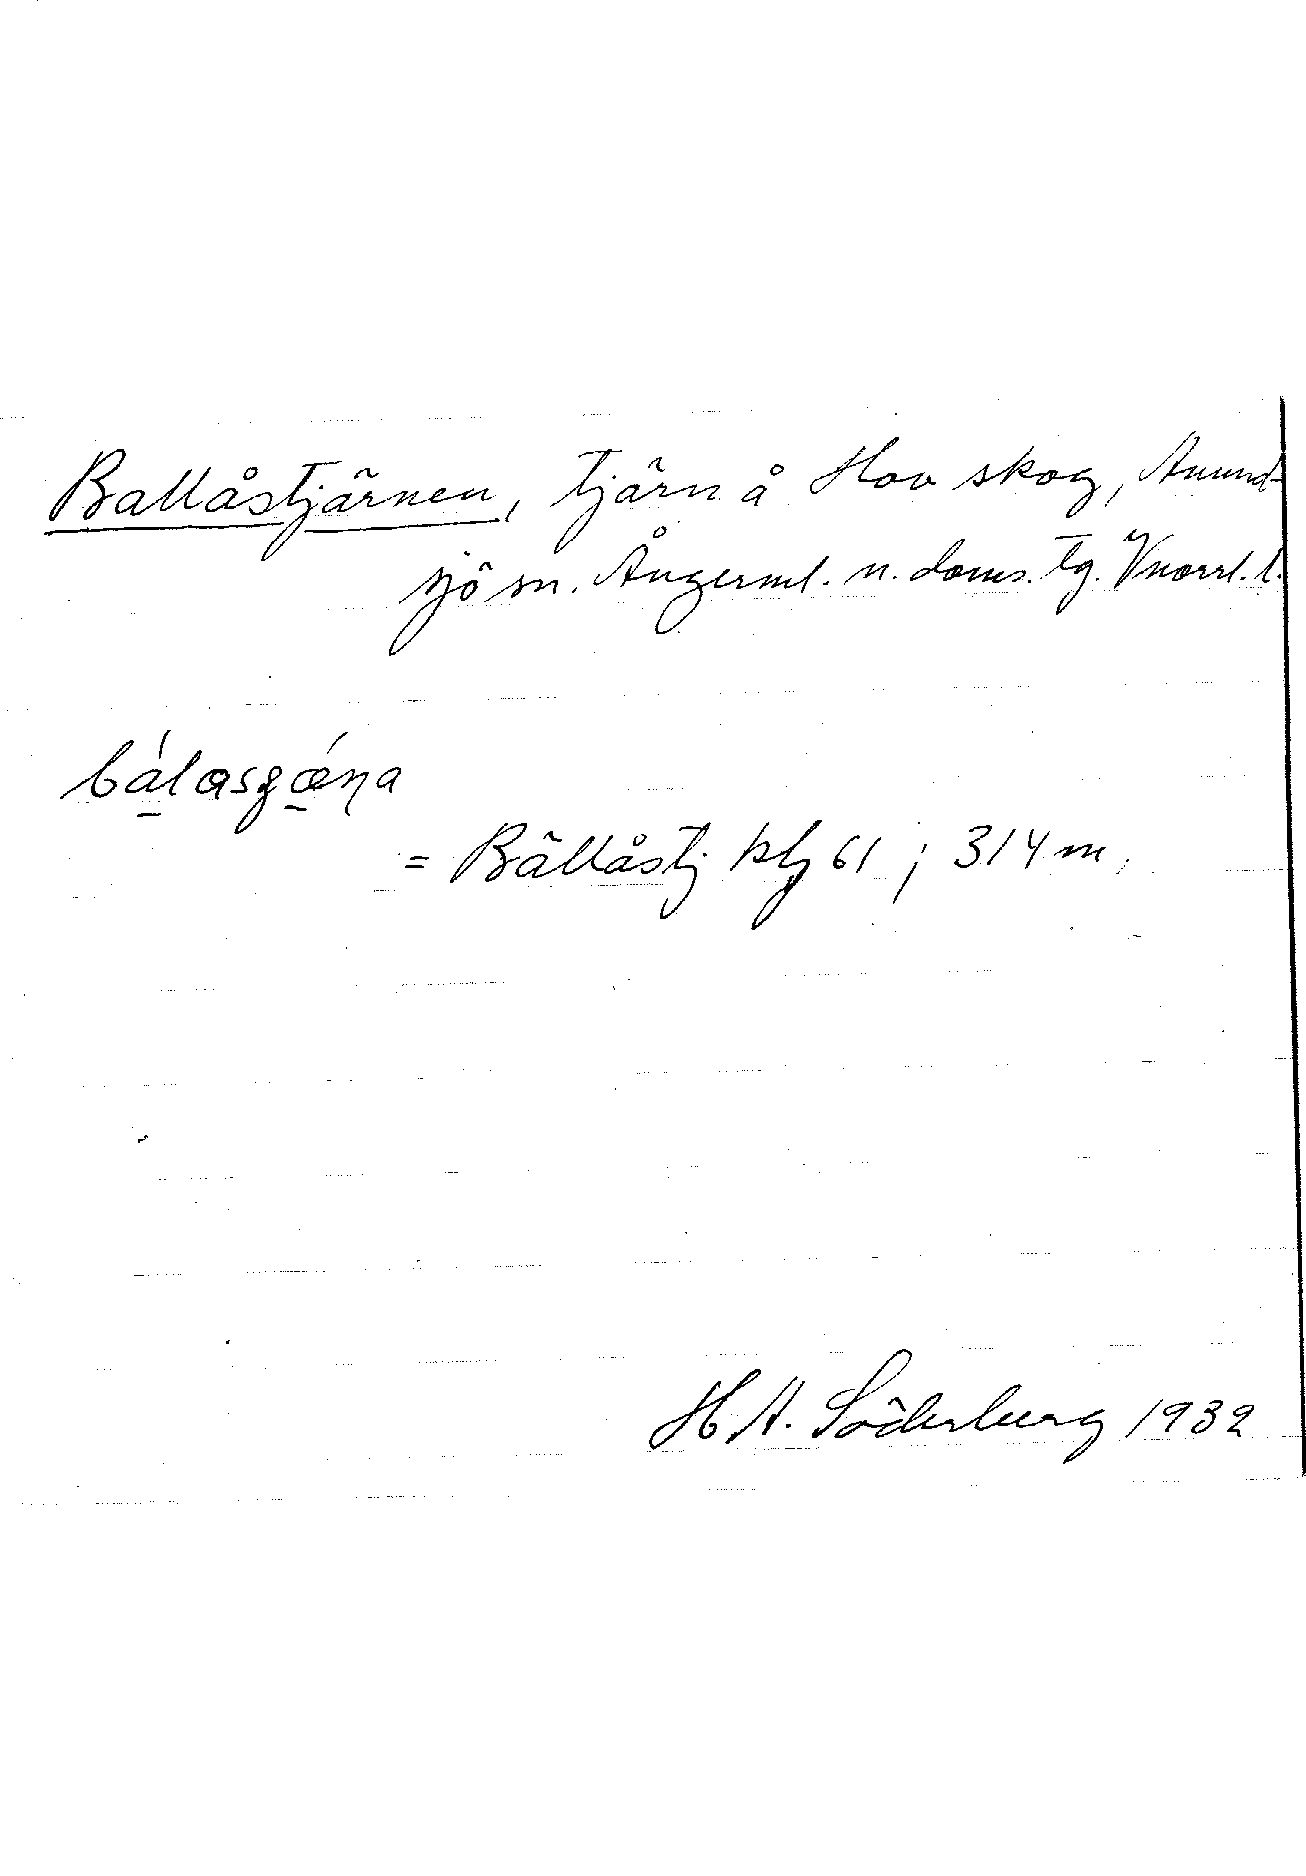 Ballåstjärnen, tjärn å Hov skog, Anund-
sjö sn. Ångerml. n. doms. tg. Vnorrl. l.
bálasgǽṇa
= Bällåstj kbl 61 ; 314 m.
H A. Söderberg 1932